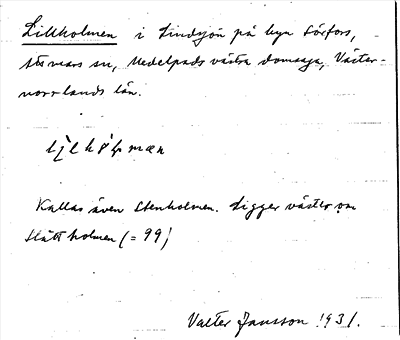 Lillholmen i Lindsjön på byn Sörfors,
Attmars sn, Medelpads västra domsaga, Väster-
norrlands län.
Kallas även Stenholmen. Ligger väster om
Slåttholmen (= 99)
Valter Jansson 1931.